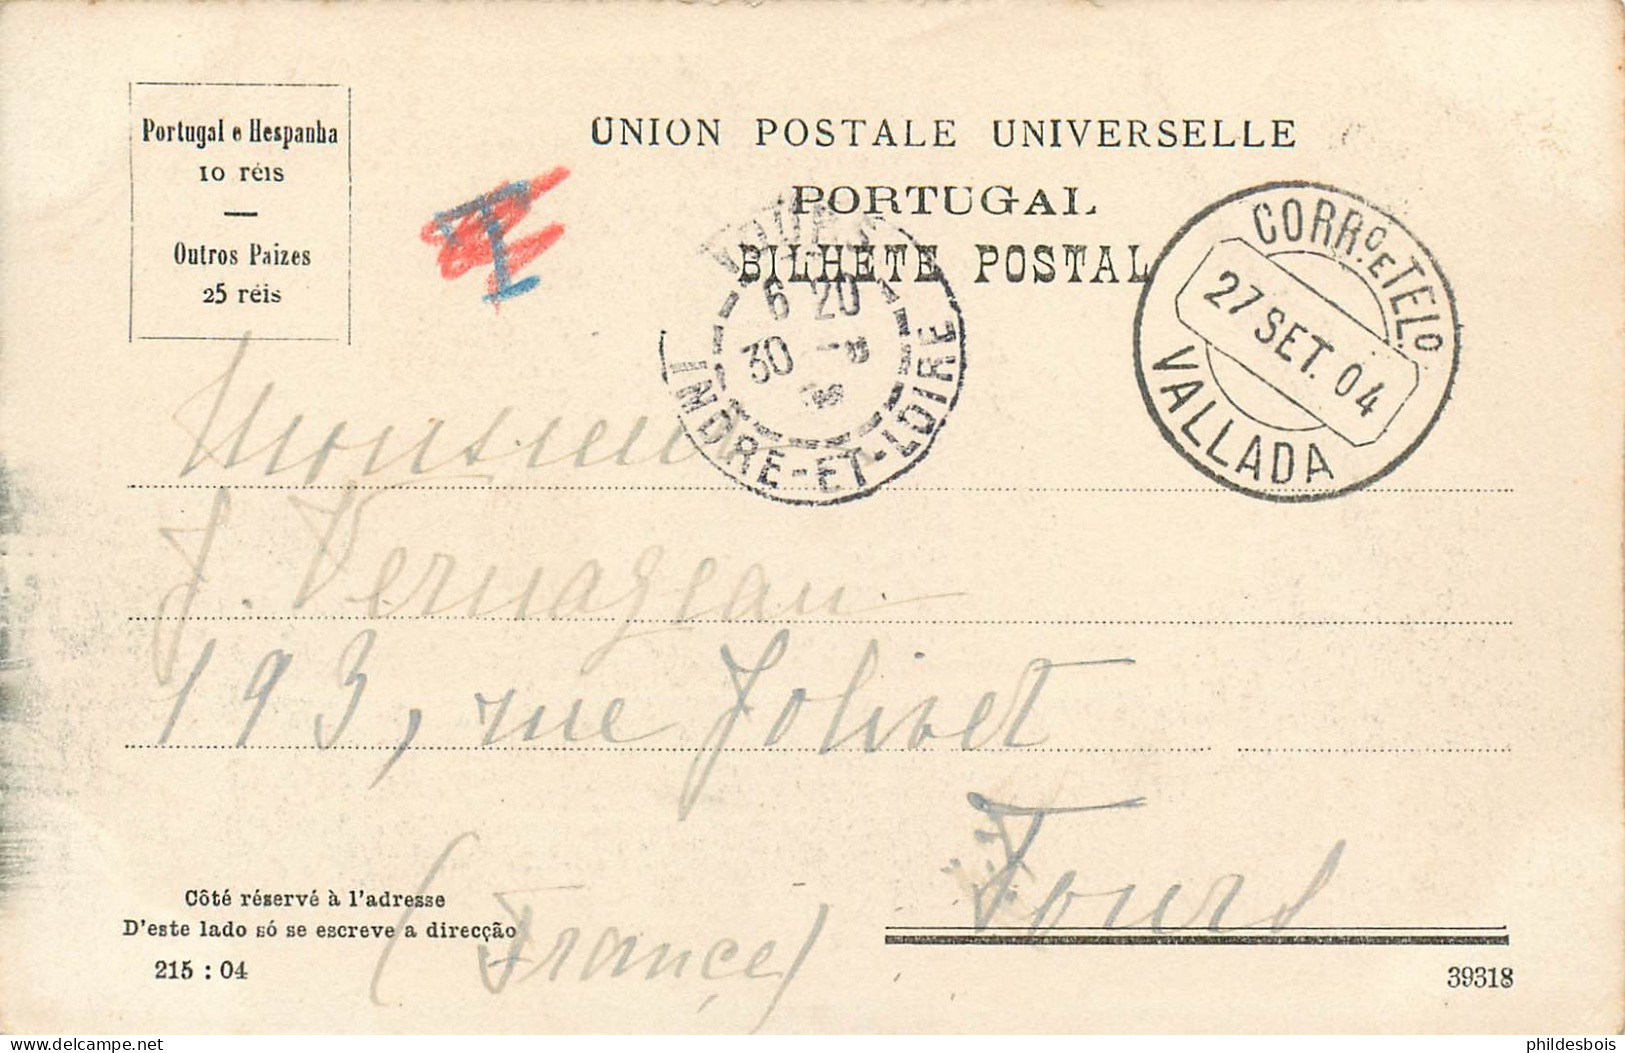 Portugal e Hespanha
10 réis
Outros Paizes
25 réis
UNION POSTALE UNIVERSELLE
PORTUGAL
BILHETE POSTAL
T
TOURS
6 20
30
INDRE-ET-LOIRE
CORRO. E TELO.
27 SET. 04
VALLADA
Monsieur
J. Vernageau
193, rue Jolivet
Tours
(France)
Côté réservé à l'adresse
D'este lado só se escreve a direcção
215 : 04
39318
delcampe.net
phildesbois